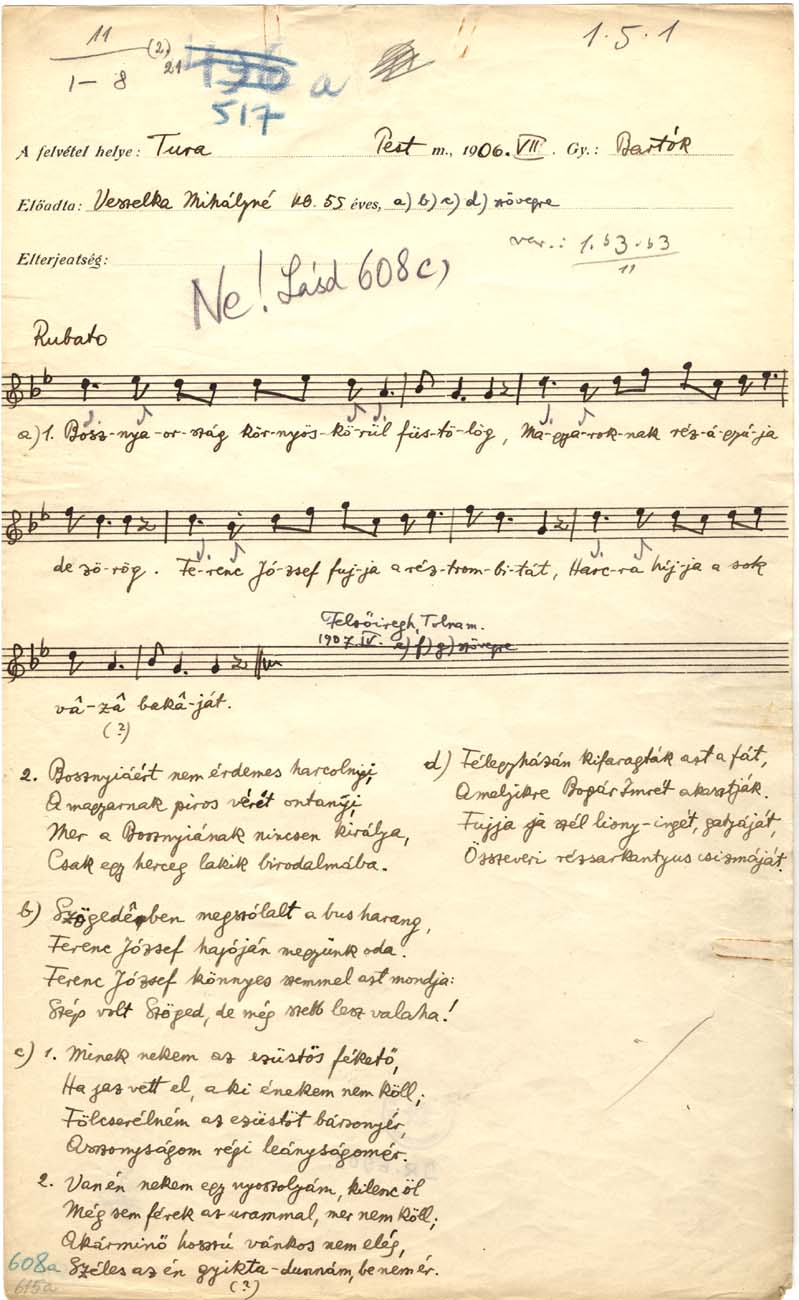 11
1-8
(2)
21
517
a
1.5.1
A felvétel helye: Tura Pest m., 1906. VII. Gy.: Bartók
Előadta: Veszelka Mihályné kb. 55 éves, a) b) c) d) szövegre
Elterjedtség:
var.: 1. b3. b3
11
Ne! Lásd 608c)
Rubato
a) 1. Bosz-nya-or-szág kör-nyös-kö-rül füs-tö-lög, Ma-gya-rok-nak réz-á-gyú-ja
de zö-rög. Fe-renc Jó-zsef fuj-ja a réz-trom-bi-tát, Harc-ra híj-ja a sok
Felsőiregh, Tolna m.
1907. IV. e) f) g) szövegre
vâ-zâ bakâ-ját.
(?)
2. Bosznyiáért nem érdemes harcolnyi,
A magyarnak piros vérét ontanyi,
Mer a Bosznyiának nincsen királya,
Csak egy herceg lakik birodalmába.
d) Félegyházán kifaragták azt a fát,
Amelyikre Bogár Imrét akasztják.
Fujja a szél liony-ingét, gatyáját,
Összeveri rézsarkantyus csizmáját.
b) Szögedébe megszólalt a bus harang,
Ferenc József hajóján megyünk oda.
Ferenc József könnyes szemmel azt mondja:
Szép volt Szöged, de még szebb lesz valaha!
c) 1. Minek nekem az ezüstös fékető,
Ha jaz vett el, a ki énekem nem köll;
Fölcserélném az ezüstöt bársonyér,
Asszonyságom régi leányságomér.
2. Van én nekem egy nyoszolyám, kilenc öl
Még sem férek az urammal, mer nem köll;
Akárminő hosszú vánkos nem elég,
Széles az én gyikta-dunnám, be nem ér.
(?)
608a
615a